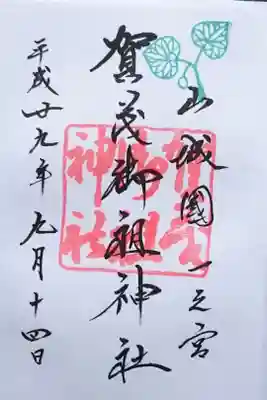 山城國一之宮
賀茂御祖神社
平成廿九年九月十四日
賀茂御祖神社